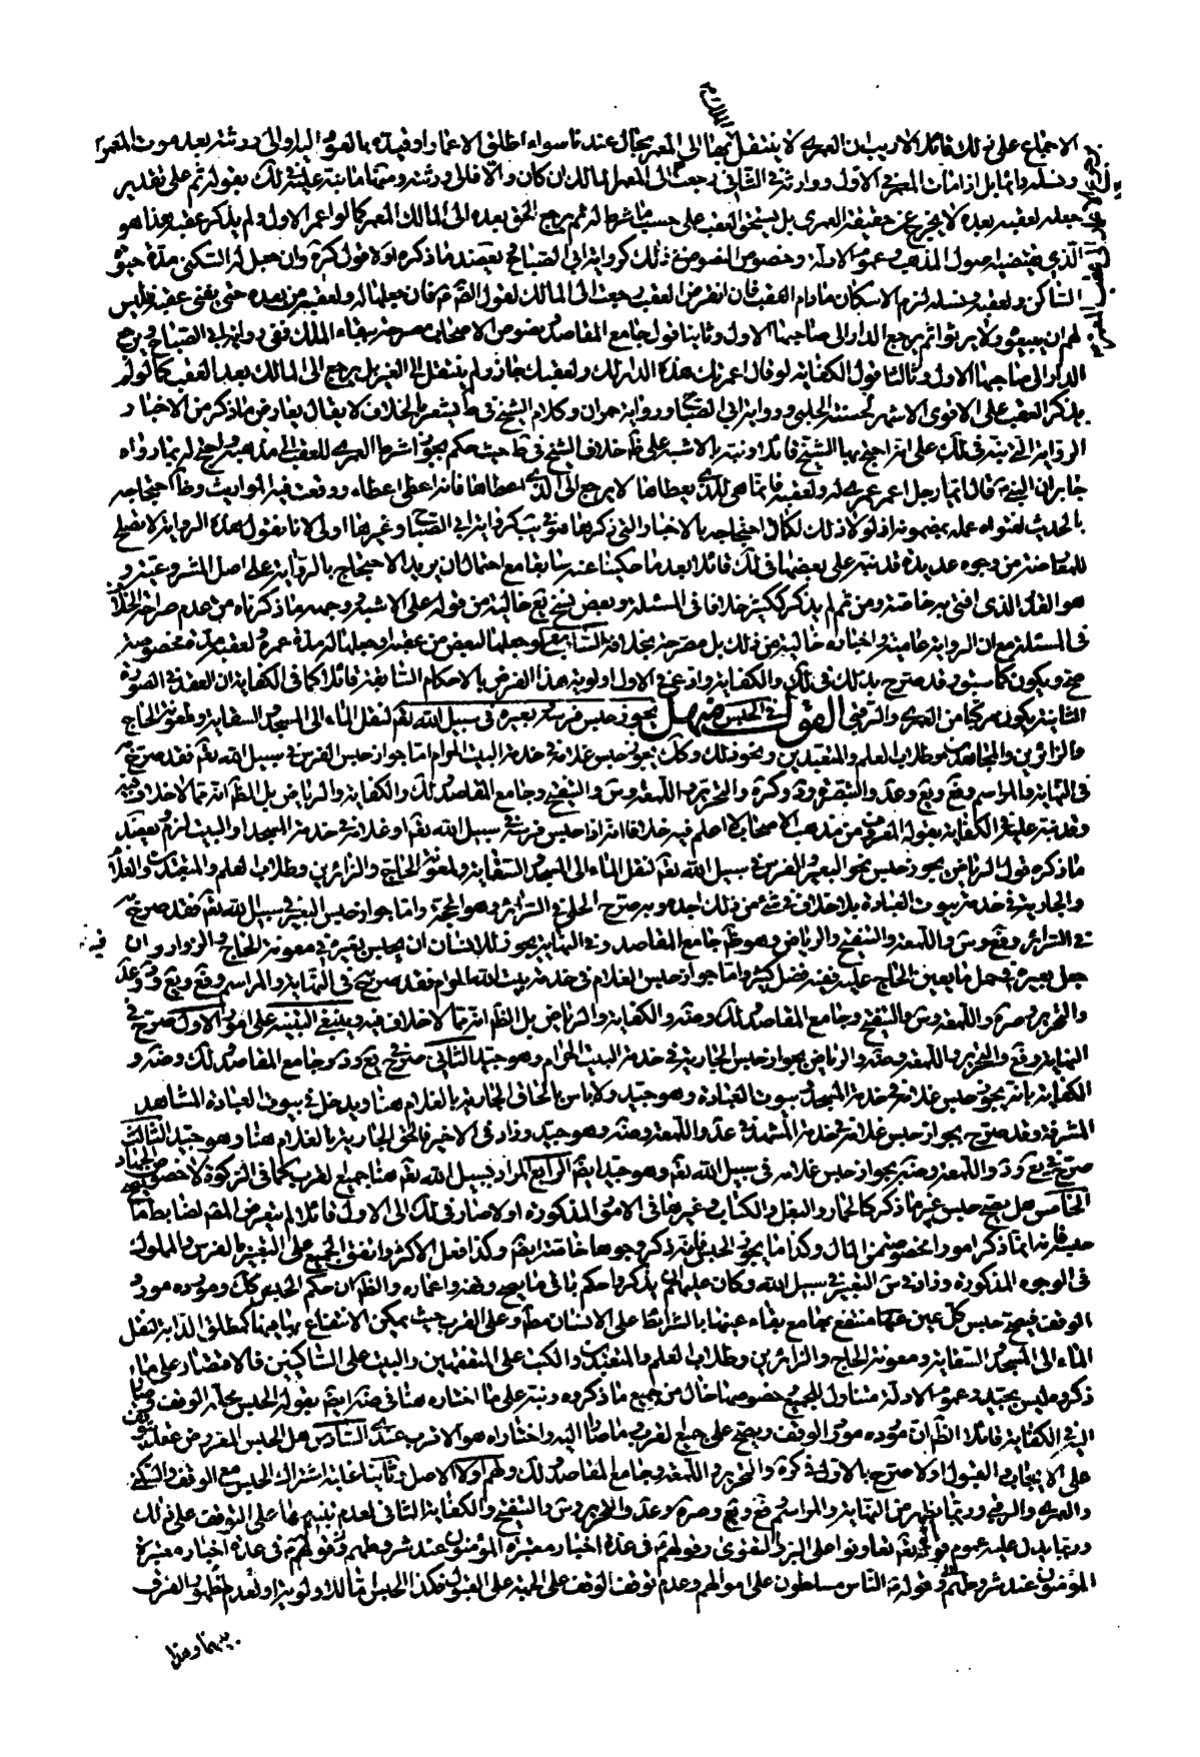 الاجماع على ذلك قائلا لا ريب ان العمرى لا ينتقل بها الى المعمر بحال عندنا سواء اطلق الاعمار او قيده بالعود اليه او الى ورثته بعد موت المعمر
ونسله وانما بل اذا مات المعمر فى الاول ووارثه فى الثانى رجعت الى المعمر المالك ان كان والا فالى ورثته نبه عليه فى لك بقوله ثم على تقدير
جعله لعقبه بعده لا يخرج عن حقيقة العمرى بل يستحق العقب على حسب ما شرط له ثم يرجع الحق بعده الى المالك المعمر كما لو اعمر الاول ولم يذكر عقبه وهذا هو
الذى يقتضيه اصول المذهب وعموم الادلة وخصوص النصوص فى ذلك كرواية ابى الصباح يعضد ما ذكره اولا قول كرة وان جعل له السكنى مدة حيوة
الساكن ولعقبه ونسله لزم الاسكان ما دام العقب فان انقرض العقب رجعت الى المالك لقول الصم فان جعلها له ولعقبه من بعده حتى يفنى عقبه فليس
لهم ان يبيعوه ولا يورثوا ثم يرجع الدار الى صاحبها الاول وثانيا قول جامع المقاصد نصوص الاصحاب مصرحة ببقاء الملك ففى رواية ابى الصباح ويرجع
الدار الى صاحبها الاول وثالثا قول الكفاية لو قال اعمرتك هذه الدار لك ولعقبك جاز ولم ينتقل الى الغير بل يرجع الى المالك بعد العقب كما لو لم
يذكر العقب على الاقوى الاشهر لحسنة الحلبى ورواية ابى الصباح ورواية حمران وكلام الشيخ فى ط يشعر بالخلاف لا يقال يعارض ما ذكر من الاخبار
الرواية التى نبه فى لك على انه احتج بها الشيخ قائلا ونبه بالاشبه على خلاف الشيخ فى ط حيث حكم بجواز اشتراط العمرى للعقب الى مذهبه واحتج له بما رواه
جابر ان النبى ص قال ايما رجل اعمر عمرى له ولعقبه فانما هى للذى يعطاها لا يرجع الى الذى اعطاها فانه اعطى اعطاء ووقعت فيه المواريث
بالحديث لفتواه عمله بمضمونه اذ لولا ذلك لكان احتجاجه بالاخبار التى ذكرها هو فى يب كرواية ابى الصباح وغيرها اولى لانا نقول هذه الرواية لا يصلح
للمعارضة من وجوه عديدة قد نبه على بعضها فى لك قائلا بعد ما حكينا عنه سابقا مع احتمال ان يريد الاحتجاج بالرواية على اصل المشروعية و
هو القدر الذى افتى به خاصة ومن ثم لم يذكر كثير خلافا فى المسئلة وبعض نسخ يع خالية من قوله على الاشبه ووجهه ما ذكرناه من عدم صراحة الخلاف
فى المسئلة مع ان الرواية عامية واخبارنا خالية من ذلك بل مصرحة بخلافه السابع لو جعلها لبعض من عقبه او جعلها له مدة عمره ولعقبه مدة مخصوصة
صح ويكون كما سبق وقد صرح بذلك فى لك والكفاية وادعى فى الاول اولوية هذا الفرض بالاحكام السابقة قائلا كما فى الكفاية ان العقد فى الصورة
الثانية يكون مركبا من العمرى والرقبى القول فى الحبس منهل يجوز حبس فرسه وبعيره فى سبيل الله تقم لنقل الماء الى المسجد والسقاية ولمعونة الحاج
والزائرين والمجاهدين وطلاب العلم والمتعبدين ونحو ذلك وكذا يجوز حبس غلامه فى خدمة البيت الحرام اما جواز حبس الفرس فى سبيل الله تقم فقد صرح به
فى النهاية والمراسم وفع ويع وعد والتبصرة ود وكرة والتحرير واللمعة وس والتنقيح وجامع المقاصد ولك والكفاية والرياض بل الظ انه مما لا خلاف فيه
وقد نبه عليه فى الكفاية بقوله المعروف من مذهب الاصحاب لا اعلم فيه خلافا انه اذا حبس فرسه فى سبيل الله تقم او غلامه فى خدمة المسجد او البيت لزم يعضد
ما ذكره قول الرياض يجوز حبس نحو البعير والفرس فى سبيل الله تقم لنقل الماء الى المسجد والسقاية ولمعونة الحاج والزائرين وطلاب العلم والمتعبدين والغلام
والجارية فى خدمة بيوت العبادة بلا خلاف فى شئ من ذلك اجده وبه صرح الحلى فى السرائر وهو الحجة واما جواز حبس البعير فى سبيل الله تقم فقد صرح به
فى السرائر وفع وس واللمعة والتنقيح والرياض وهو ظم جامع المقاصد وفى النهاية يجوز للانسان ان يحبس بعيره فى معونة الحاج والزوار وان
جعل بعيره فى حمل ما يعين الحاج عليه ففيه فضل كثير واما جواز حبس الغلام فى خدمة بيت الله الحرام فقد صرح به فى النهاية والمراسم وفع ويع ود وعد
والتحرير وصرة واللمعة وس والتنقيح وجامع المقاصد ولك وضه والكفاية والرياض بل الظ انه مما لا خلاف فيه وينبغى التنبيه على امور الاول صرح فى
النهاية وفع والتحرير واللمعة وضه والرياض بجواز حبس الجارية فى خدمة البيت الحرام وهو جيد الثانى صرح فى يع ود وجامع المقاصد ولك وضه و
الكفاية بانه يجوز حبس غلامه فى خدمة المسجد وبيوت العبادة وهو جيد ولا باس بالحاق الجارية بالغلام هنا ويدخل فى بيوت العبادة المشاهد
المشرفة وقد صرح بجواز حبس غلامه فى خدمة المشهد فى عد واللمعة وضه وهو جيد وزاد فى الاخير فالحق الجارية بالغلام هنا وهو جيد الثالث
صرح فى يع ود واللمعة وضه بجواز حبس غلامه فى سبيل الله تقم وهو جيد ايضم الرابع المراد بسبيل الله تقم هنا جميع القرب كما فى الزكوة لا خصوص الجهاد
الخامس هل يصح حبس غير ما ذكر كالحمار والبغل والكتاب وغيرها فى الامور المذكورة او لا صار فى لك الى الاول قائلا لم يتعرض المصم لضابط ما
حبسه وانما ذكر امورا مخصوصة من المال وكذا ما يجوز الحبس فانه ذكر وجوها خاصة ايضم وكذا فعل الاكثر واتفق الجميع على التعبير بالفرس والمملوك
فى الوجوه المذكورة وزاد فى س البعير فى سبيل الله وكان عليهم ان يذكروا حكم باقى ما يصح وقفه واعماره والظ ان حكم الحبس كك ومورده مورد
الوقف فيصح حبس كل عين عنها منتفع بها مع بقاء عينها بالشرائط على الانسان مطم وعلى القرب حيث يمكن الانتفاع بها فيها كمطلق الدابة لنقل
الماء الى المسجد والسقاية ومعونة الحاج والزائرين وطلاب العلم والمتعبدين والكتب على المتفقهين والبيت على المساكين فالاقتصار على ما
ذكروه ليس بجيد وعموم الادلة متناول للجميع خصوصها خال من جميع ما ذكروه ونبه على ما اختاره هنا فى ضه ايضم بقوله الحبس محله الوقف وصار
اليه فى الكفاية قائلا الظ ان مورده مورد الوقف ويصح على جميع القرب وما صارا اليه واختاراه هو الاقرب عندى السادس هل الحبس المفروض عقد يتوقف
على الايجاب والقبول او لا صرح بالاول فى كرة والتحرير واللمعة وجامع المقاصد ولك ولهم اولا الاصل وثانيا غاية اشتراك الحبس مع الوقف والسكنى
والعمرى والرقبى وربما يظهر من النهاية والمراسم وفع ويع وصرة وعد والتحرير وس والتنقيح والكفاية الثانى لعدم تنبيهها على التوقف على ذلك
وربما يدل عليه عموم قوله تقم تعاونوا على البر والتقوى وقولهم فى عدة اخبار معتبرة المؤمنون عند شروطهم وقولهم فى عدة اخبار معتبرة
المؤمنون عند شروطهم وقوله ص الناس مسلطون على اموالهم وعدم توقف الوقف على الجهة على القبول فكذا الحبس اما للاولوية او لعدم ظهور الفرق
بينهما وهذا